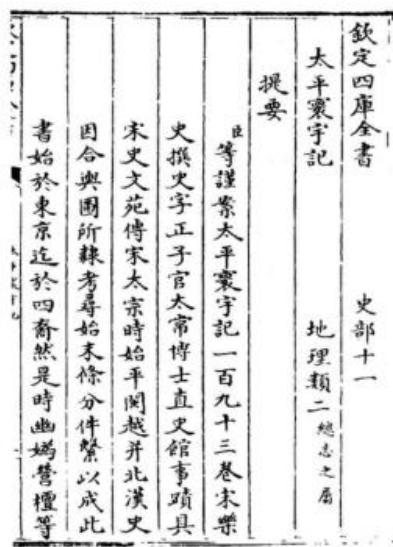 欽定四庫全書 史部十一
太平寰宇記 地理類二總志之屬
提要
臣等謹案太平寰宇記一百九十三卷宋樂
史撰史字正子官太常博士直史館事蹟具
宋史文苑傳宋太宗時始平閩越并北漢史
因合輿圖所隸考尋始末條分件繫以成此
書始於東京迄於四裔然是時幽媯營檀等